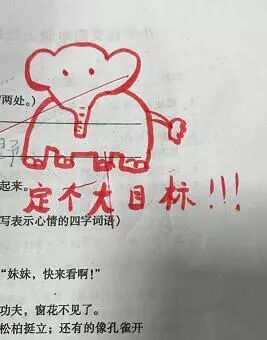 两处。)
野
起来。
定个大目标!!!
写表示心情的四字词语)
“妹妹，快来看啊!”
功夫，窗花不见了。
松柏挺立；还有的像孔雀开